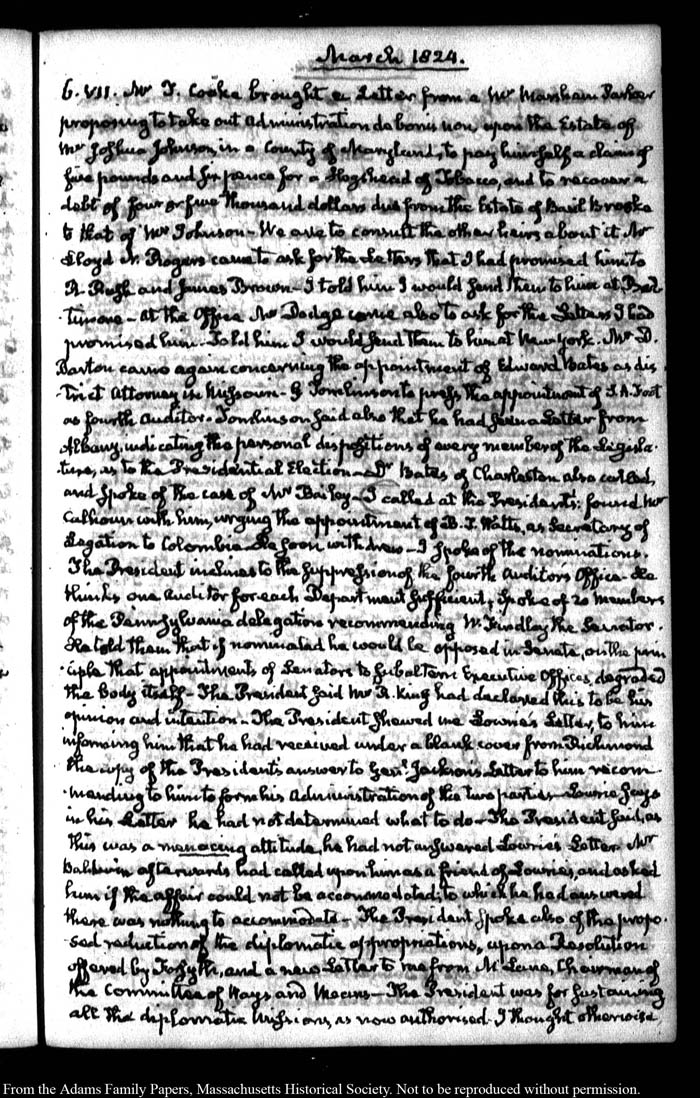 March 1824.
6. VII. Mr J. Cooke brought a Letter from a Mr Marsham Parker
proposing to take out administration de bonis non, upon the Estate of
Mr Joshua Johnson, in a County of Maryland, to pay himself a claim of
five pounds and six pence for a Hogshead of Tobacco, and to recover a
debt of four or five thousand dollars due from the Estate of Basil Brooke
to that of Mr Johnson - We are to consult the other heirs about it. Mr
Lloyd N. Rogers came to ask for the Letters that I had promised him to
R. Rush and James Brown - I told him I would send them to him at Bal
-timore - At the Office Mr Dodge came also to ask for the Letters I had
promised him. Told him I would send them to him at New York. Mr D.
Barton came again concerning the appointment of Edward Bates as dis
-trict Attorney in Missouri - G Tomlinson to press the appointment of S. A. Foot
as fourth Auditor. Tomlinson said also that he had seen a Letter from
Albany, indicating the personal dispositions of every member of the Legisla-
-ture, as to the Presidential Election - Dr Bates of Charleston also called,
and spoke of the case of Mr Bailey - I called at the President's: found Mr
Calhoun with him, urging the appointment of B. T. Watts, as Secretary of
Legation to Colombia - He soon withdrew - I spoke of the nominations.
The President inclines to the suppression of the fourth Auditor's Office - He
thinks one Auditor for each Department sufficient; spoke of 20 members
of the Pennsylvania delegation recommending W. Findlay the Senator.
He told them that if nominated he would be opposed in Senate, on the prin
-ciple that appointments of Senators to subaltern Executive Offices, degraded
the Body itself - The President said Mr R. King had declared this to be his
opinion and intention - The President shewed me Lowrie's Letter, to him
informing him that he had received under a blank cover from Richmond
the copy of the President's answer to Genl. Jackson's Letter to him recom
-mending to him to form his Administration of the two parties - Lowrie says
in his Letter he had not determined what to do - The President said, as
this was a menacing attitude, he had not answered Lowrie's Letter. Mr
Baldwin afterwards had called upon him as a friend of Lowrie's, and asked
him if the affair could not be accommodated; to which he had answered
there was nothing to accommodate - The President spoke also of the propo-
-sed reduction of the diplomatic appropriations, upon a Resolution
offered by Forsyth, and a new Letter to me from McLane, Chairman of
the Committee of Ways and Means - The President was for sustaining
all the diplomatic Missions, as now authorised - I thought otherwise
From the Adams Family Papers, Massachusetts Historical Society. Not to be reproduced without permission.